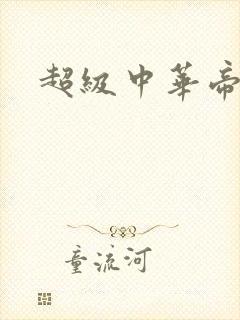 超級中華帝
童流河